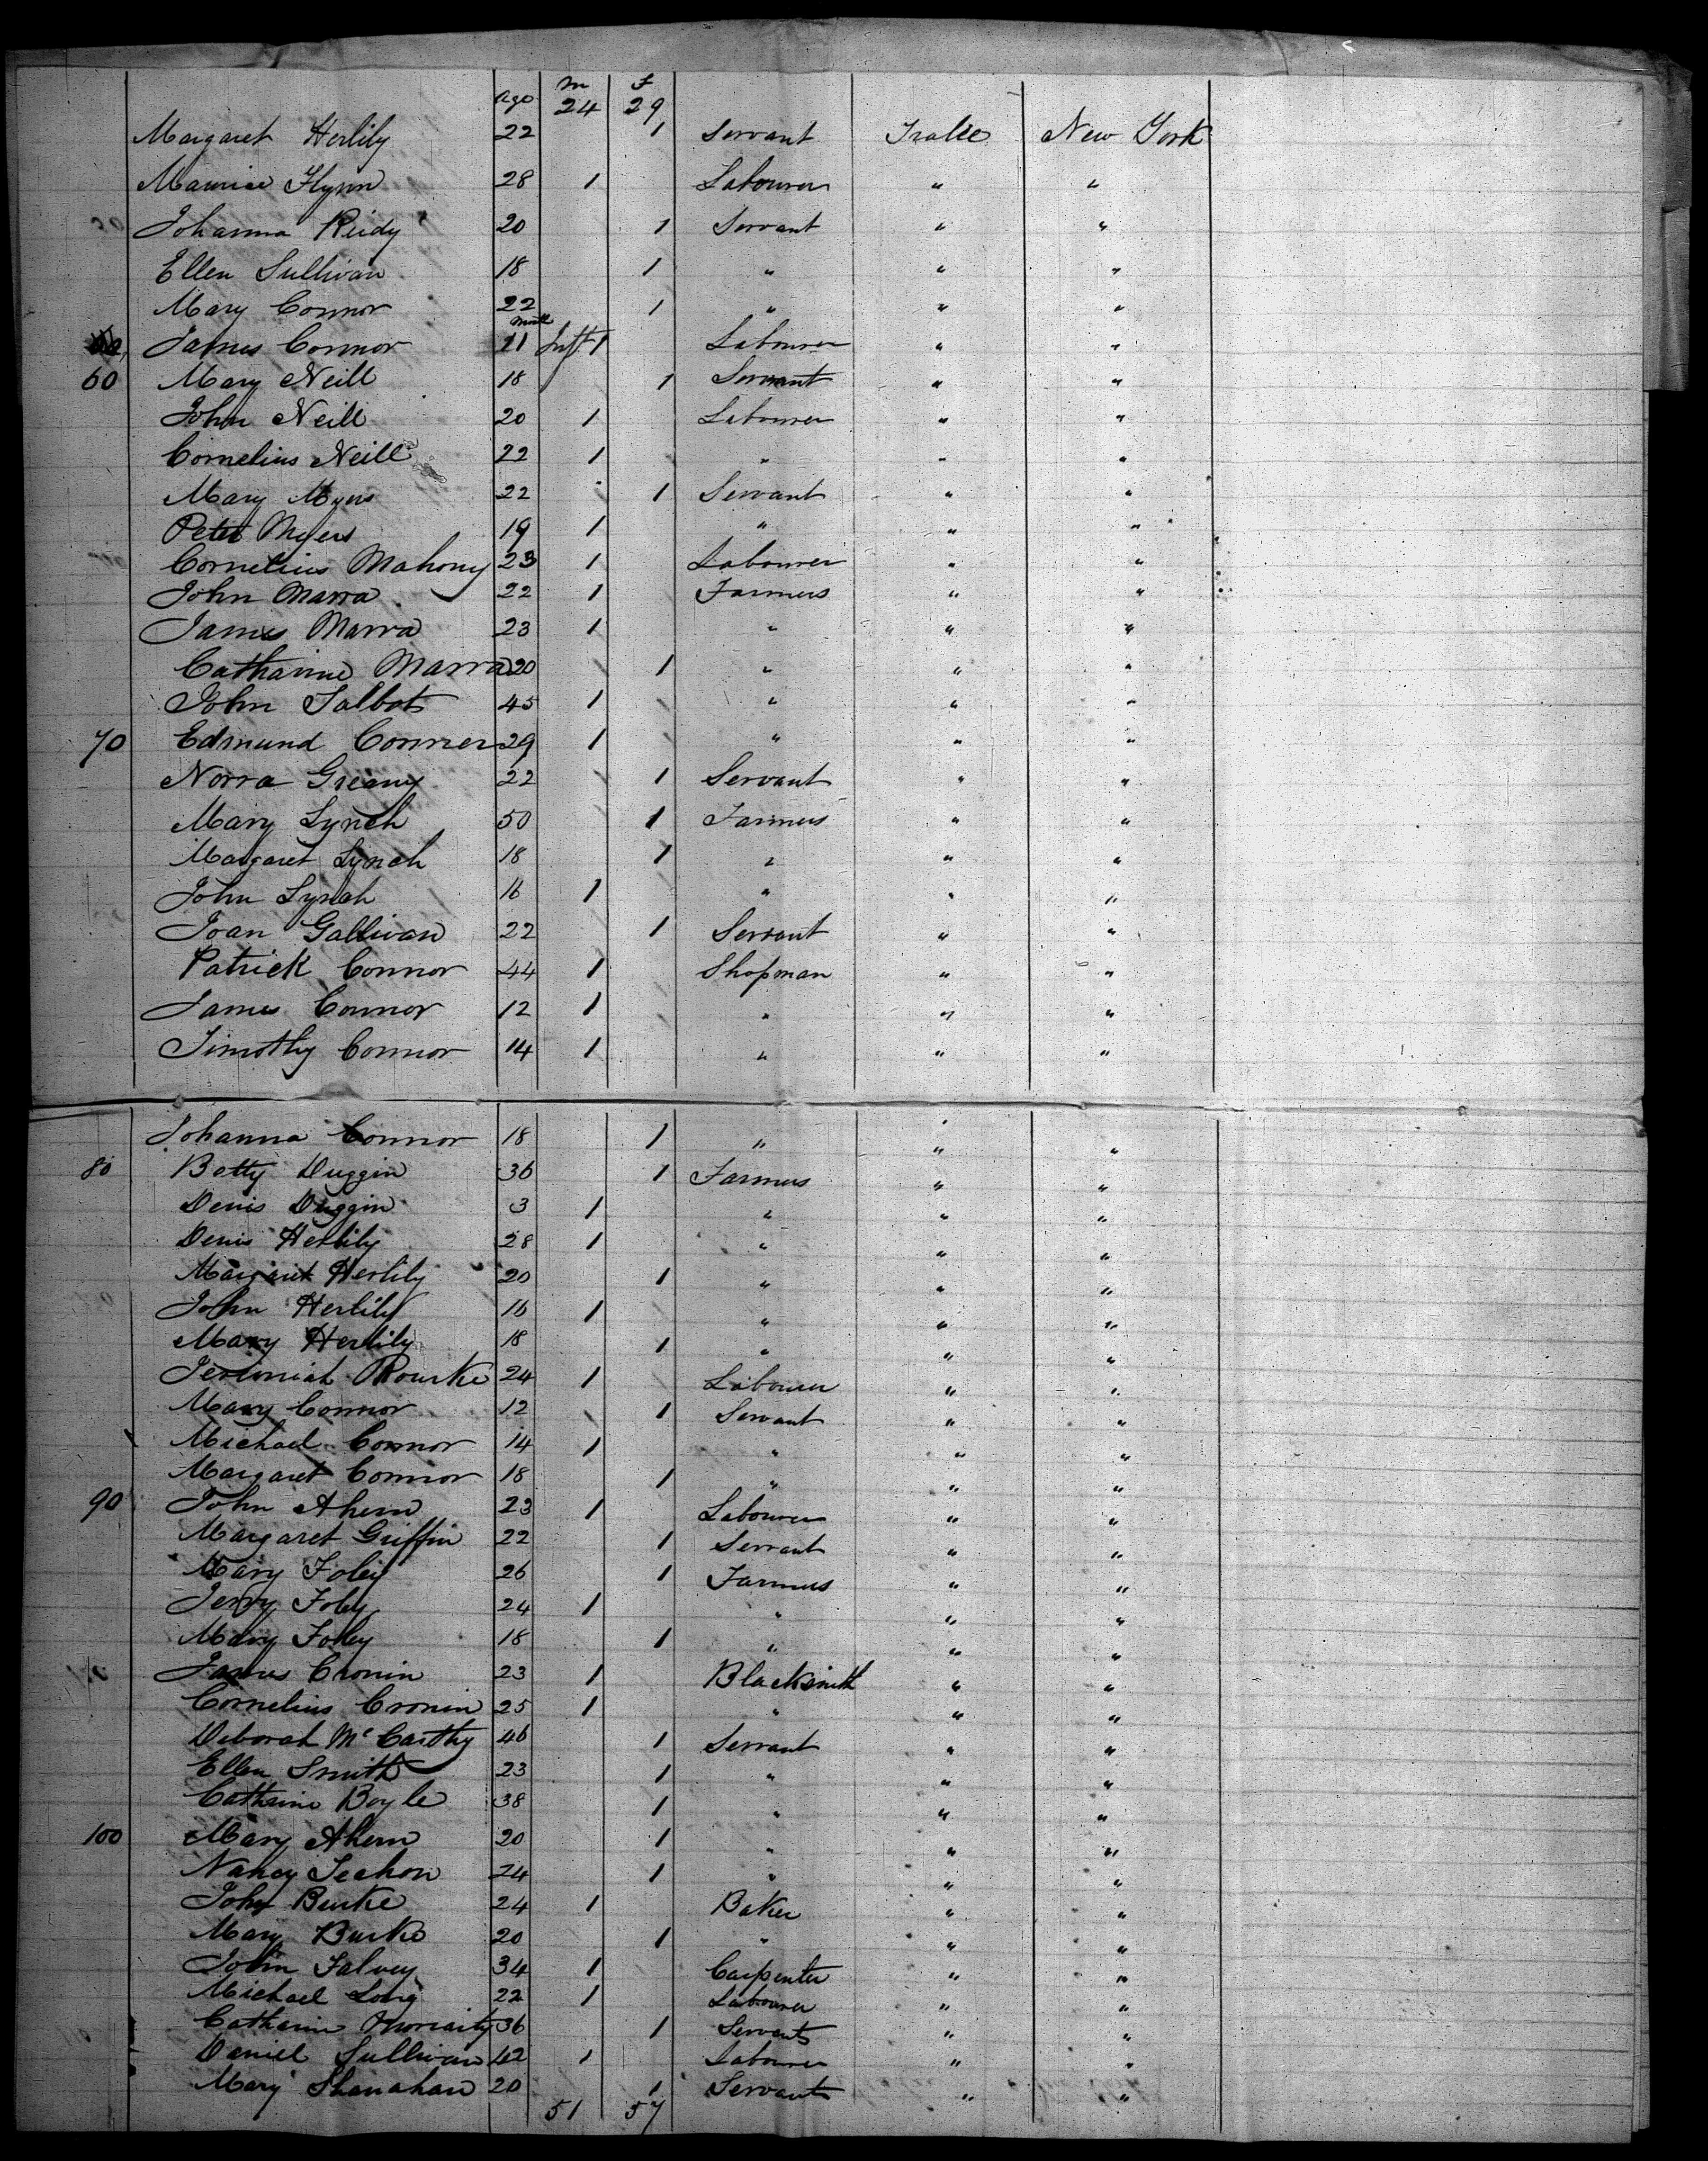 age m f
24 29
Margaret Herlily 22 1 Servant Tralee New York
Maurice Flynn 28 1 Labourer " "
Johanna Reidy 20 1 Servant " "
Ellen Sullivan 18 1 " " "
Mary Connor 22 1 " " "
James Connor 11 Month Inft 1 Labourer " "
60 Mary Neill 18 1 Servant " "
John Neill 20 1 Labourer " "
Cornelius Neill 22 1 " " "
Mary Myers 22 1 Servant " "
Peter Myers 19 1 " " "
Cornelius Mahony 23 1 Labourer " "
John Marra 22 1 Farmers " "
James Marra 23 1 " " "
Catharine Marra 20 1 " " "
John Talbot 45 1 " " "
70 Edmund Conner 29 1 " " "
Norra Greany 22 1 Servant " "
Mary Lynch 50 1 Farmers " "
Margaret Lynch 18 1 " " "
John Lynch 16 1 " " "
Joan Gallivan 22 1 Servant " "
Patrick Connor 44 1 Shopman " "
James Connor 12 1 " " "
Timothy Connor 14 1 " " "
Johanna Connor 18 1 " " "
80 Betty Duggin 36 1 Farmers " "
Denis Duggin 3 1 " " "
Denis Herlily 28 1 " " "
Margaret Herlily 20 1 " " "
John Herlily 16 1 " " "
Mary Herlily 18 1 " " "
Jeremiah Rourke 24 1 Labourer " "
Mary Connor 12 1 Servant " "
Michael Connor 14 1 " " "
Margaret Connor 18 1 " " "
90 John Ahern 23 1 Labourer " "
Margaret Griffin 22 1 Servant " "
Mary Foley 26 1 Farmers " "
Jerry Foley 24 1 " " "
Mary Foley 18 1 " " "
James Cronin 23 1 Blacksmith " "
Cornelius Cronin 25 1 " " "
Deborah McCarthy 46 1 Servant " "
Ellen Smith 23 1 " " "
Catherine Boyle 38 1 " " "
100 Mary Ahern 20 1 " " "
Nancy Seehon 24 1 " " "
John Burke 24 1 Baker " "
Mary Burke 20 1 " " "
John Falvey 34 1 Carpenter " "
Michael Long 22 1 Labourer " "
Catharin Moriarty 36 1 Servants " "
Daniel Sullivan 42 1 Labourer " "
Mary Shanahan 20 1 Servants " "
51 57